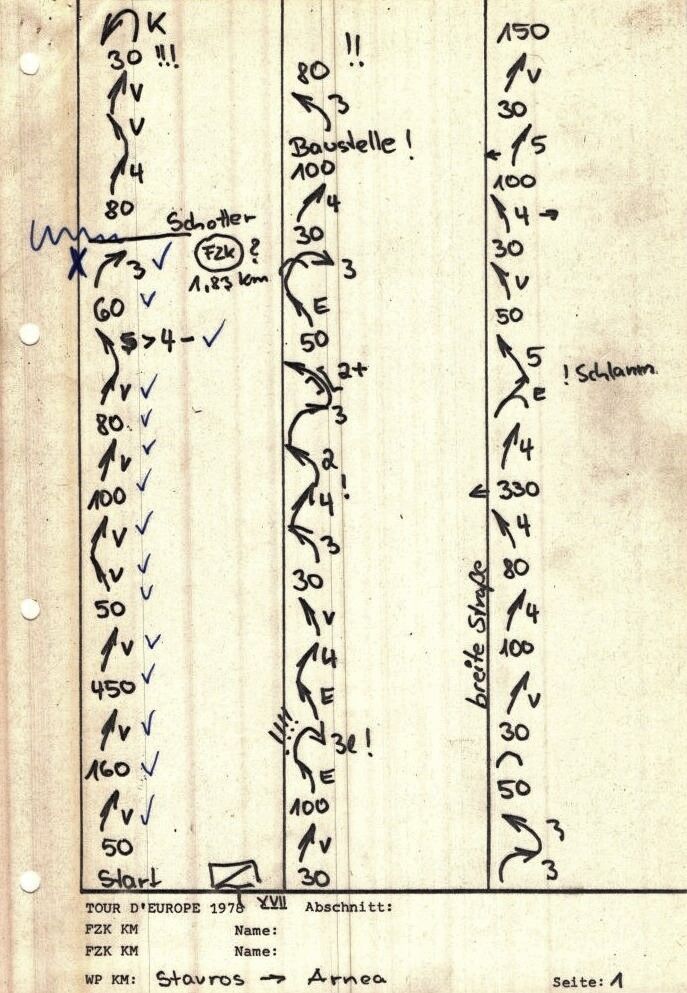 K
30 !!!
V
V
4
80
Schotter
X 3 ✓
FZK ?
1,83 km
60 ✓
5 > 4 - ✓
V ✓
80 ✓
V ✓
100 ✓
V ✓
V ✓
50 ✓
V ✓
450 ✓
V ✓
160 ✓
V ✓
50
Start
80 !!
3
Baustelle !
100
4
30
3
E
50
2+
3
2
4 !
3
30
V
4
E
!!!!
3l !
E
100
V
30
150
V
30
← 5
100
4 →
30
V
50
5
! Schlamm
E
4
← 330
4
80
breite Straße
4
100
V
30
50
3
3
TOUR D'EUROPE 1978 XVII Abschnitt:
FZK KM Name:
FZK KM Name:
WP KM: Stavros → Arnea Seite: 1